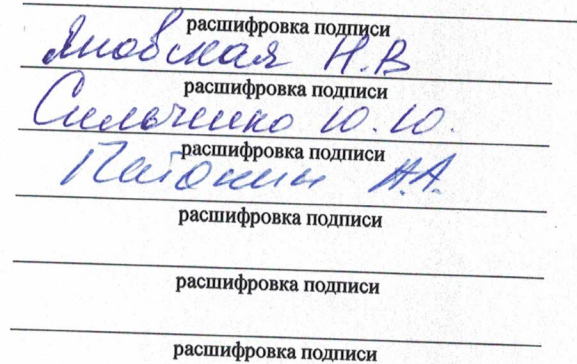 расшифровка подписи
Яновская Н.В
расшифровка подписи
Сильченко Ю.Ю.
расшифровка подписи
А.А.
расшифровка подписи
расшифровка подписи
расшифровка подписи